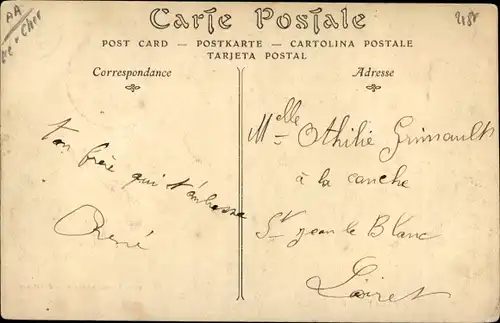 Carte Postale
POST CARD — POSTKARTE — CARTOLINA POSTALE
TARJETA POSTAL
Correspondance
Adresse
AA
Cher
ton frère qui t'embrasse
René
Melle Othilie Grimault
à la canche
St jean le Blanc
Loiret